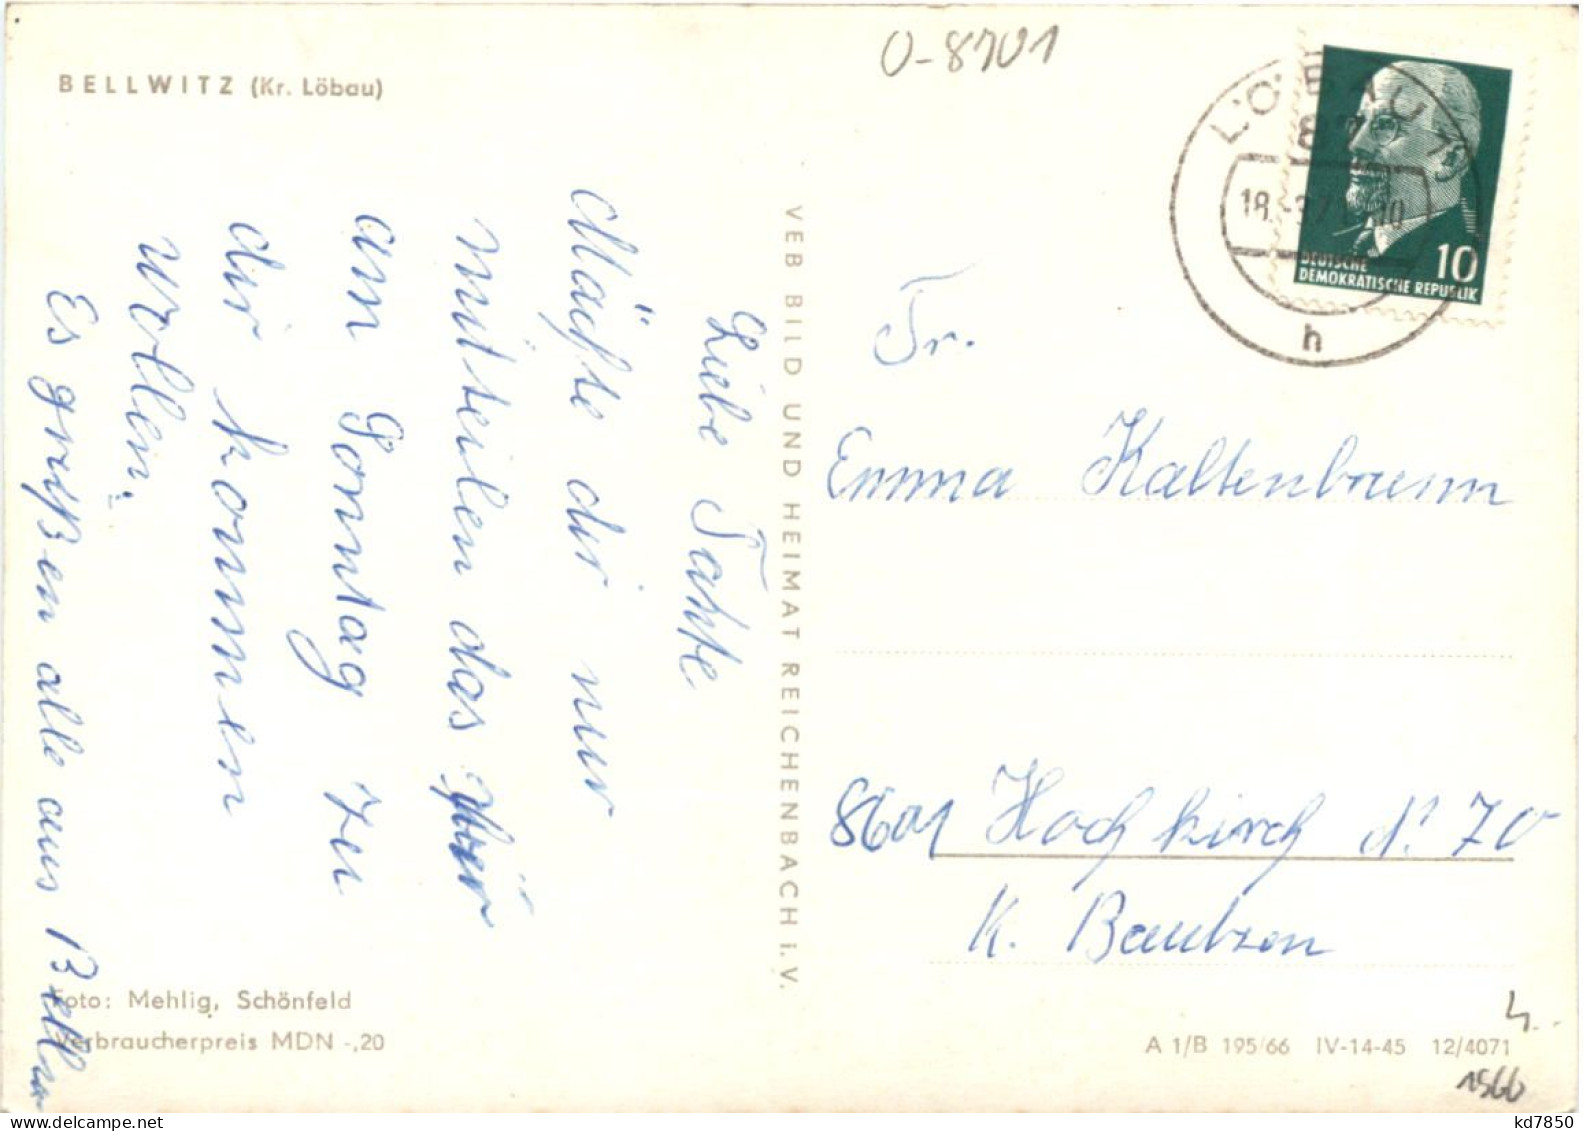 BELLWITZ (Kr. Löbau)
O-8701
LÖBAU 1
87
18.
10
h
DEUTSCHE
DEMOKRATISCHE REPUBLIK
10
Liebe Tante
Möchte dir nur
mitteilen das wir
am Sonntag zu
dir kommen
wollen.
Es grüßen alle aus Bellw
VEB BILD UND HEIMAT REICHENBACH i. V.
Fr.
Emma Kaltenbrunn
8601 Hochkirch N: 70
K. Bautzen
Foto: Mehlig, Schönfeld
Verbraucherpreis MDN -,20
A 1/B 195/66 IV-14-45 12/4071
1566
kd7850